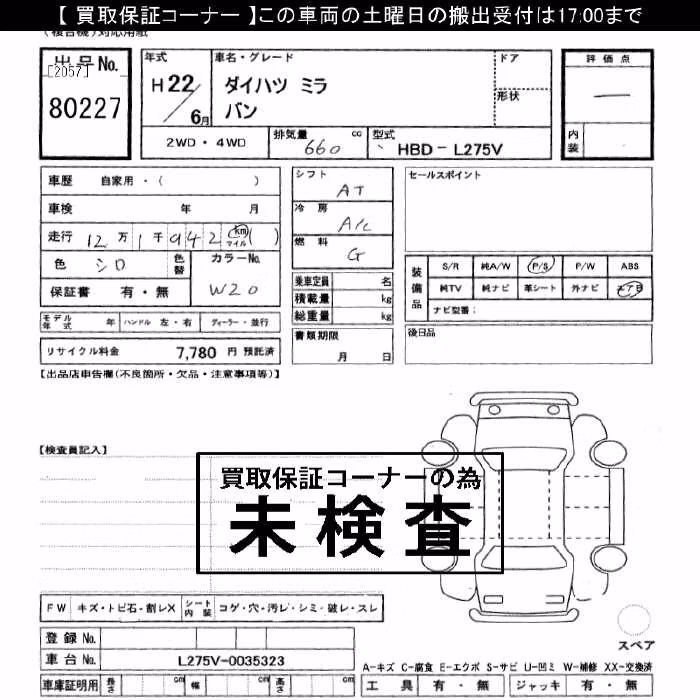 【 買取保証コーナー 】この車両の土曜日の搬出受付は17:00まで
(複合機)対応用紙
出品No.
[2057]
80227
年式
H22/6月
車名・グレード
ダイハツ ミラ
バン
ドア
形状
評価点
―
内装
2WD・4WD
排気量 660 cc
型式 HBD-L275V
車歴 自家用・( )
車検 年 月
走行 12万1千942 km マイル ( )
色 シロ
色替
カラーNo.
W20
保証書 有・無
シフト
AT
冷房
A/C
燃料
G
乗車定員 名
積載量 kg
総重量 kg
セールスポイント
装備品
S/R 純A/W P/S P/W ABS
純TV 純ナビ 革シート 外ナビ エアB
ナビ型番:
モデル年式 年 ハンドル 左・右 ディーラー・並行
リサイクル料金 7,780 円 預託済
書類期限
月 日
後日品
【出品店申告欄(不良箇所・欠品・注意事項等)】
【検査員記入】
買取保証コーナーの為
未検査
FW キズ・トビ石・割レX シート内装 コゲ・穴・汚レ・シミ・破レ・スレ
登録No.
車台No. L275V-0035323
スペア
A-キズ C-腐食 E-エクボ S-サビ U-凹ミ W-補修 XX-交換済
車庫証明用 長さ cm 幅 cm 高さ cm
工具 有・無 ジャッキ 有・無